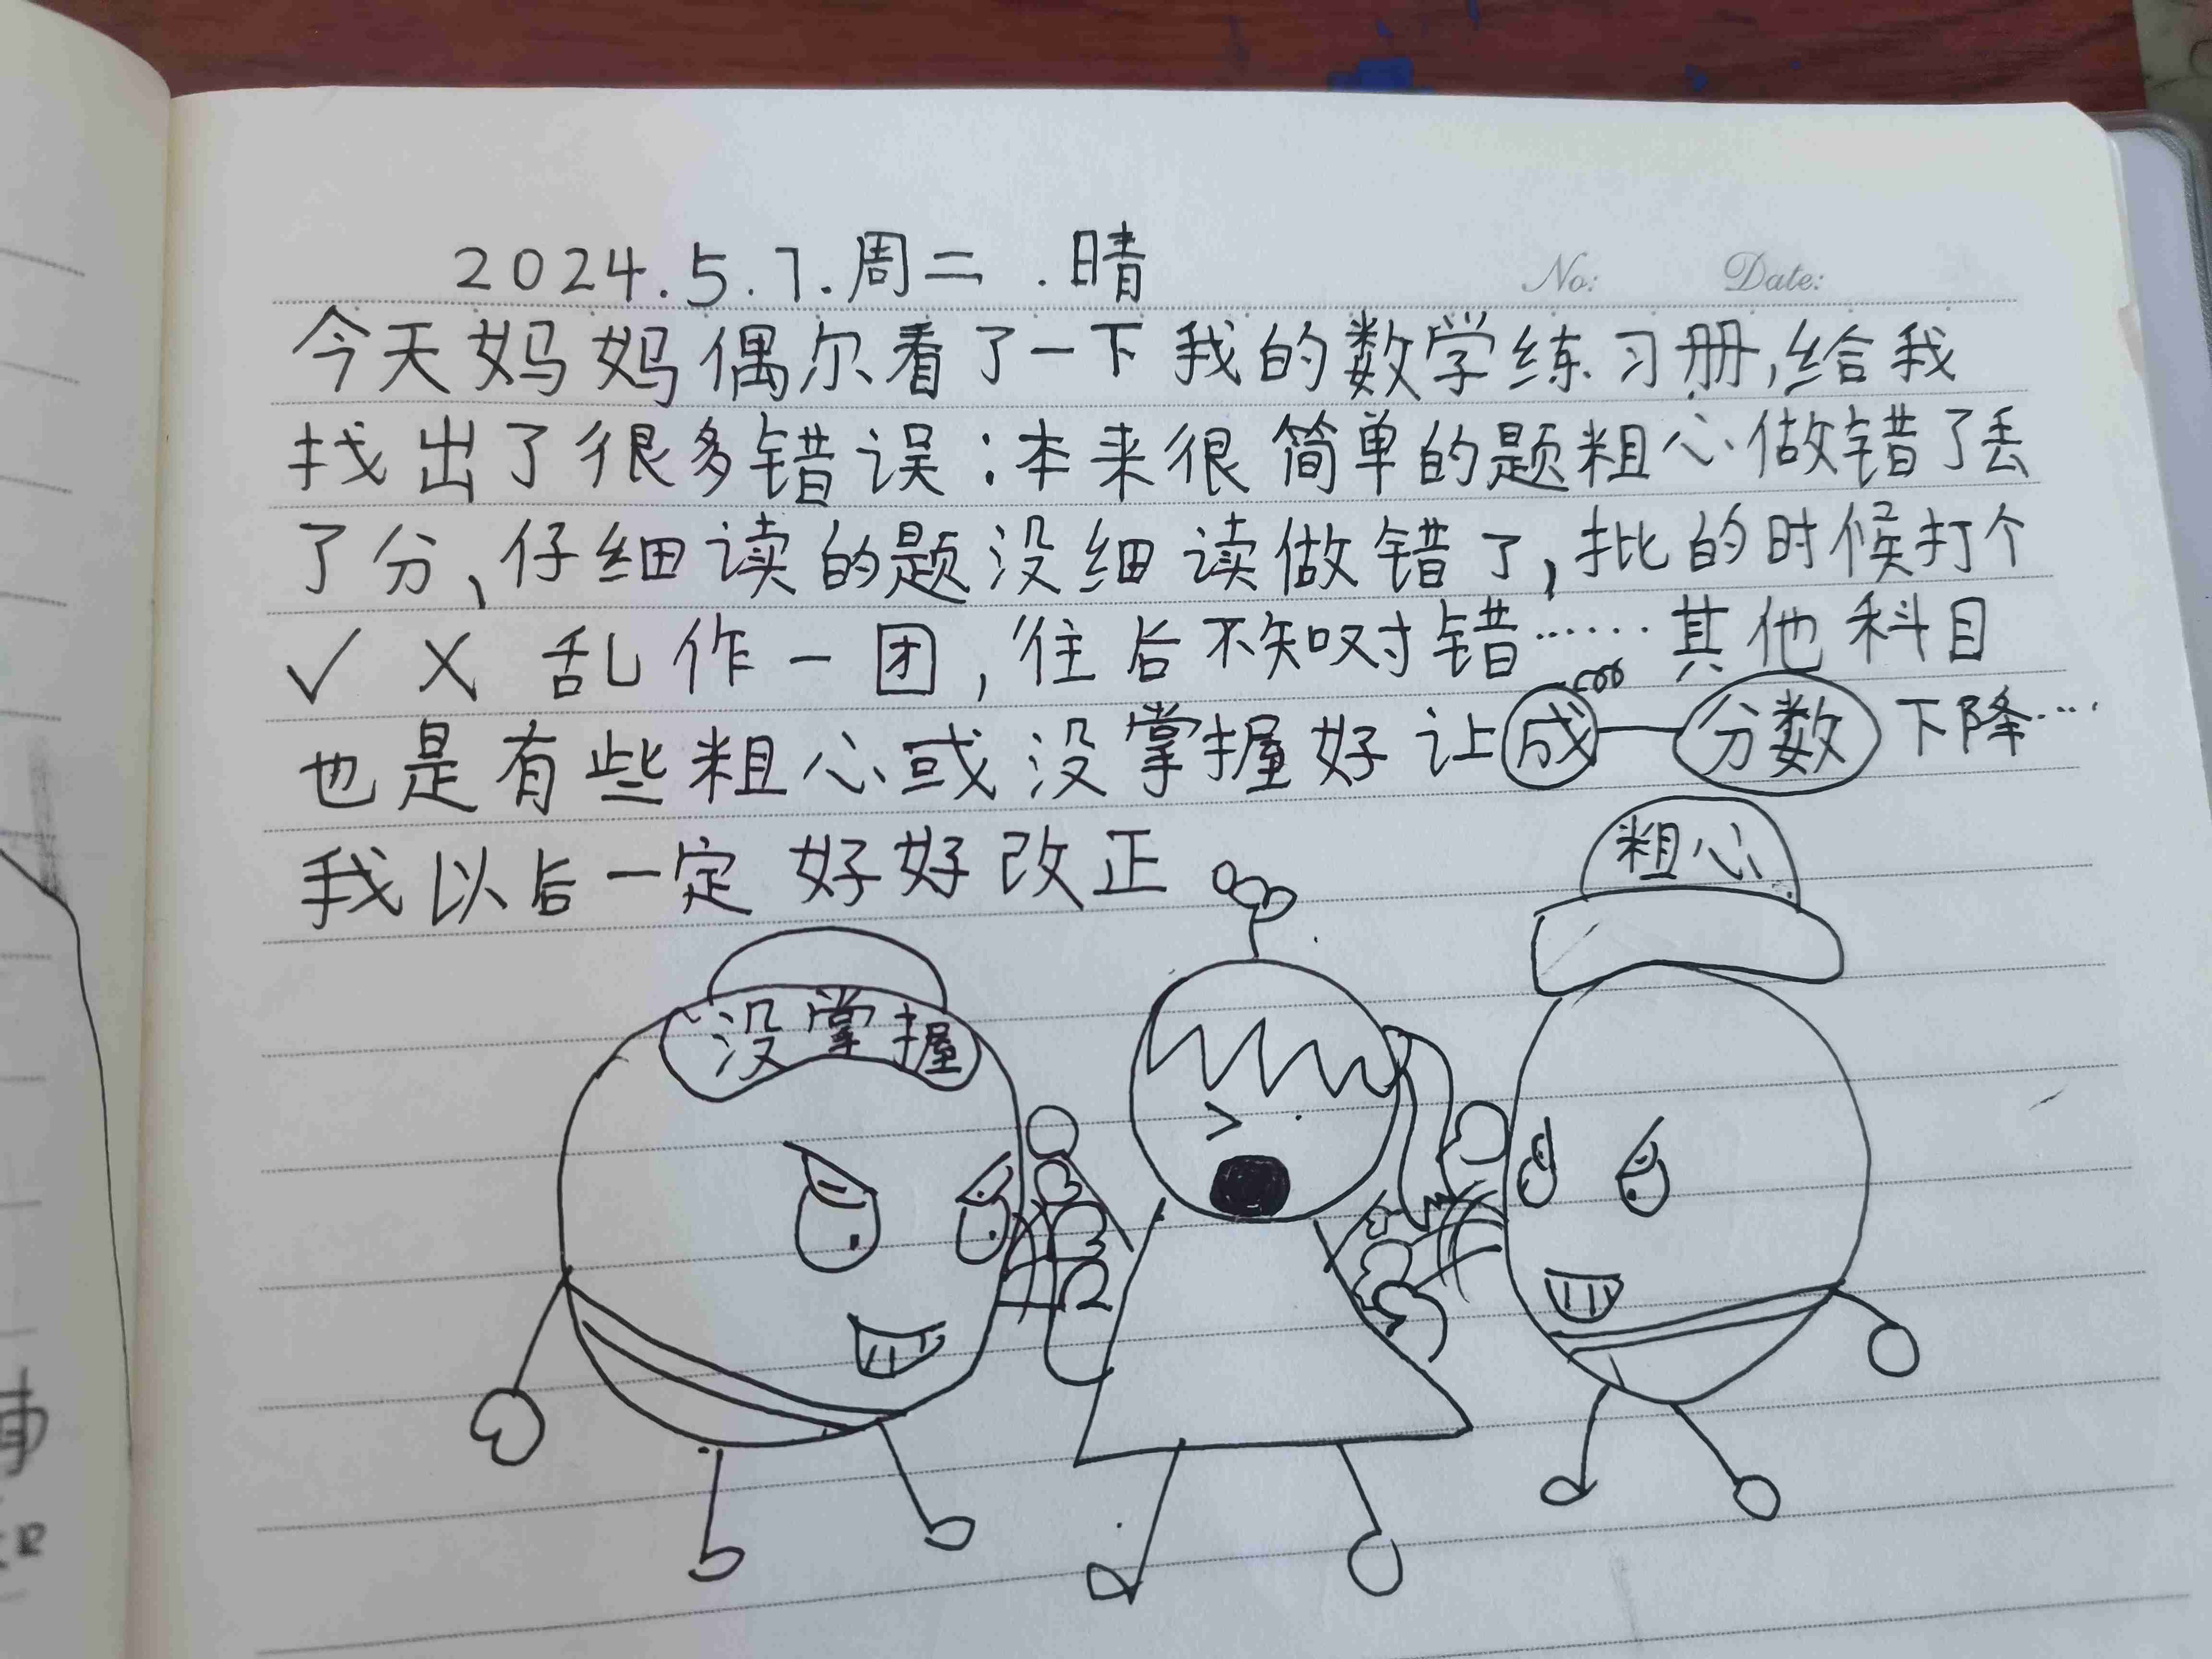 2024.5.7.周二.晴
No: Date:
今天妈妈偶尔看了一下我的数学练习册,给我
找出了很多错误:本来很简单的题粗心做错了丢
了分、仔细读的题没细读做错了,批的时候打个
✓ X 乱作一团,往后不知对错……其他科目
也是有些粗心或没掌握好让成 分数下降…
我以后一定好好改正
粗心
没掌握